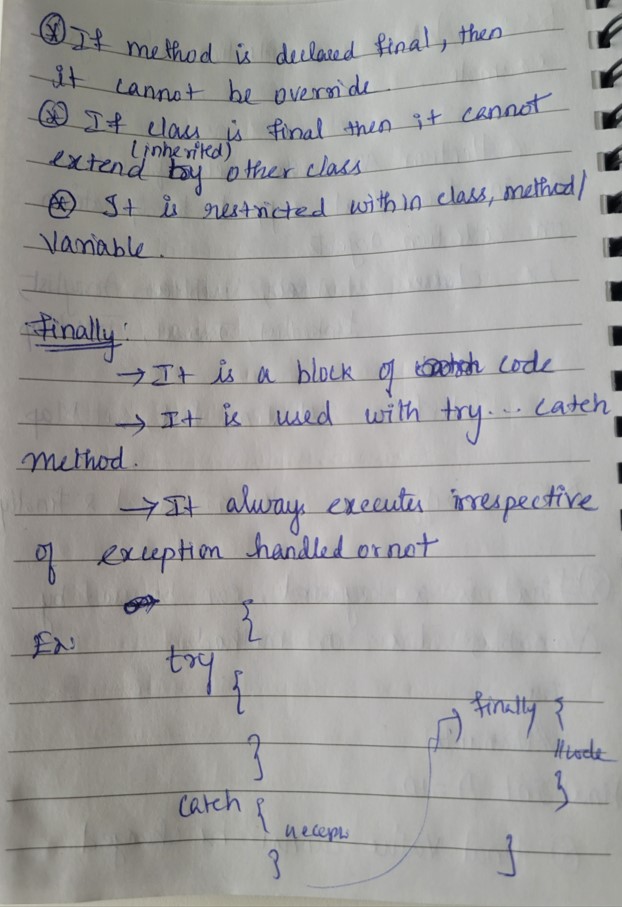 ⊛ If method is declared final, then
it cannot be override.
⊛ If class is final then it cannot
(inherited)
extend by other class
⊛ It is restricted within class, method/
Variable.
finally:
→ It is a block of code
→ It is used with try... catch
method.
→ It always executes irrespective
of exception handled or not
Ex:
{
try
{
}
catch {
}
→ finally {
//code
}
}